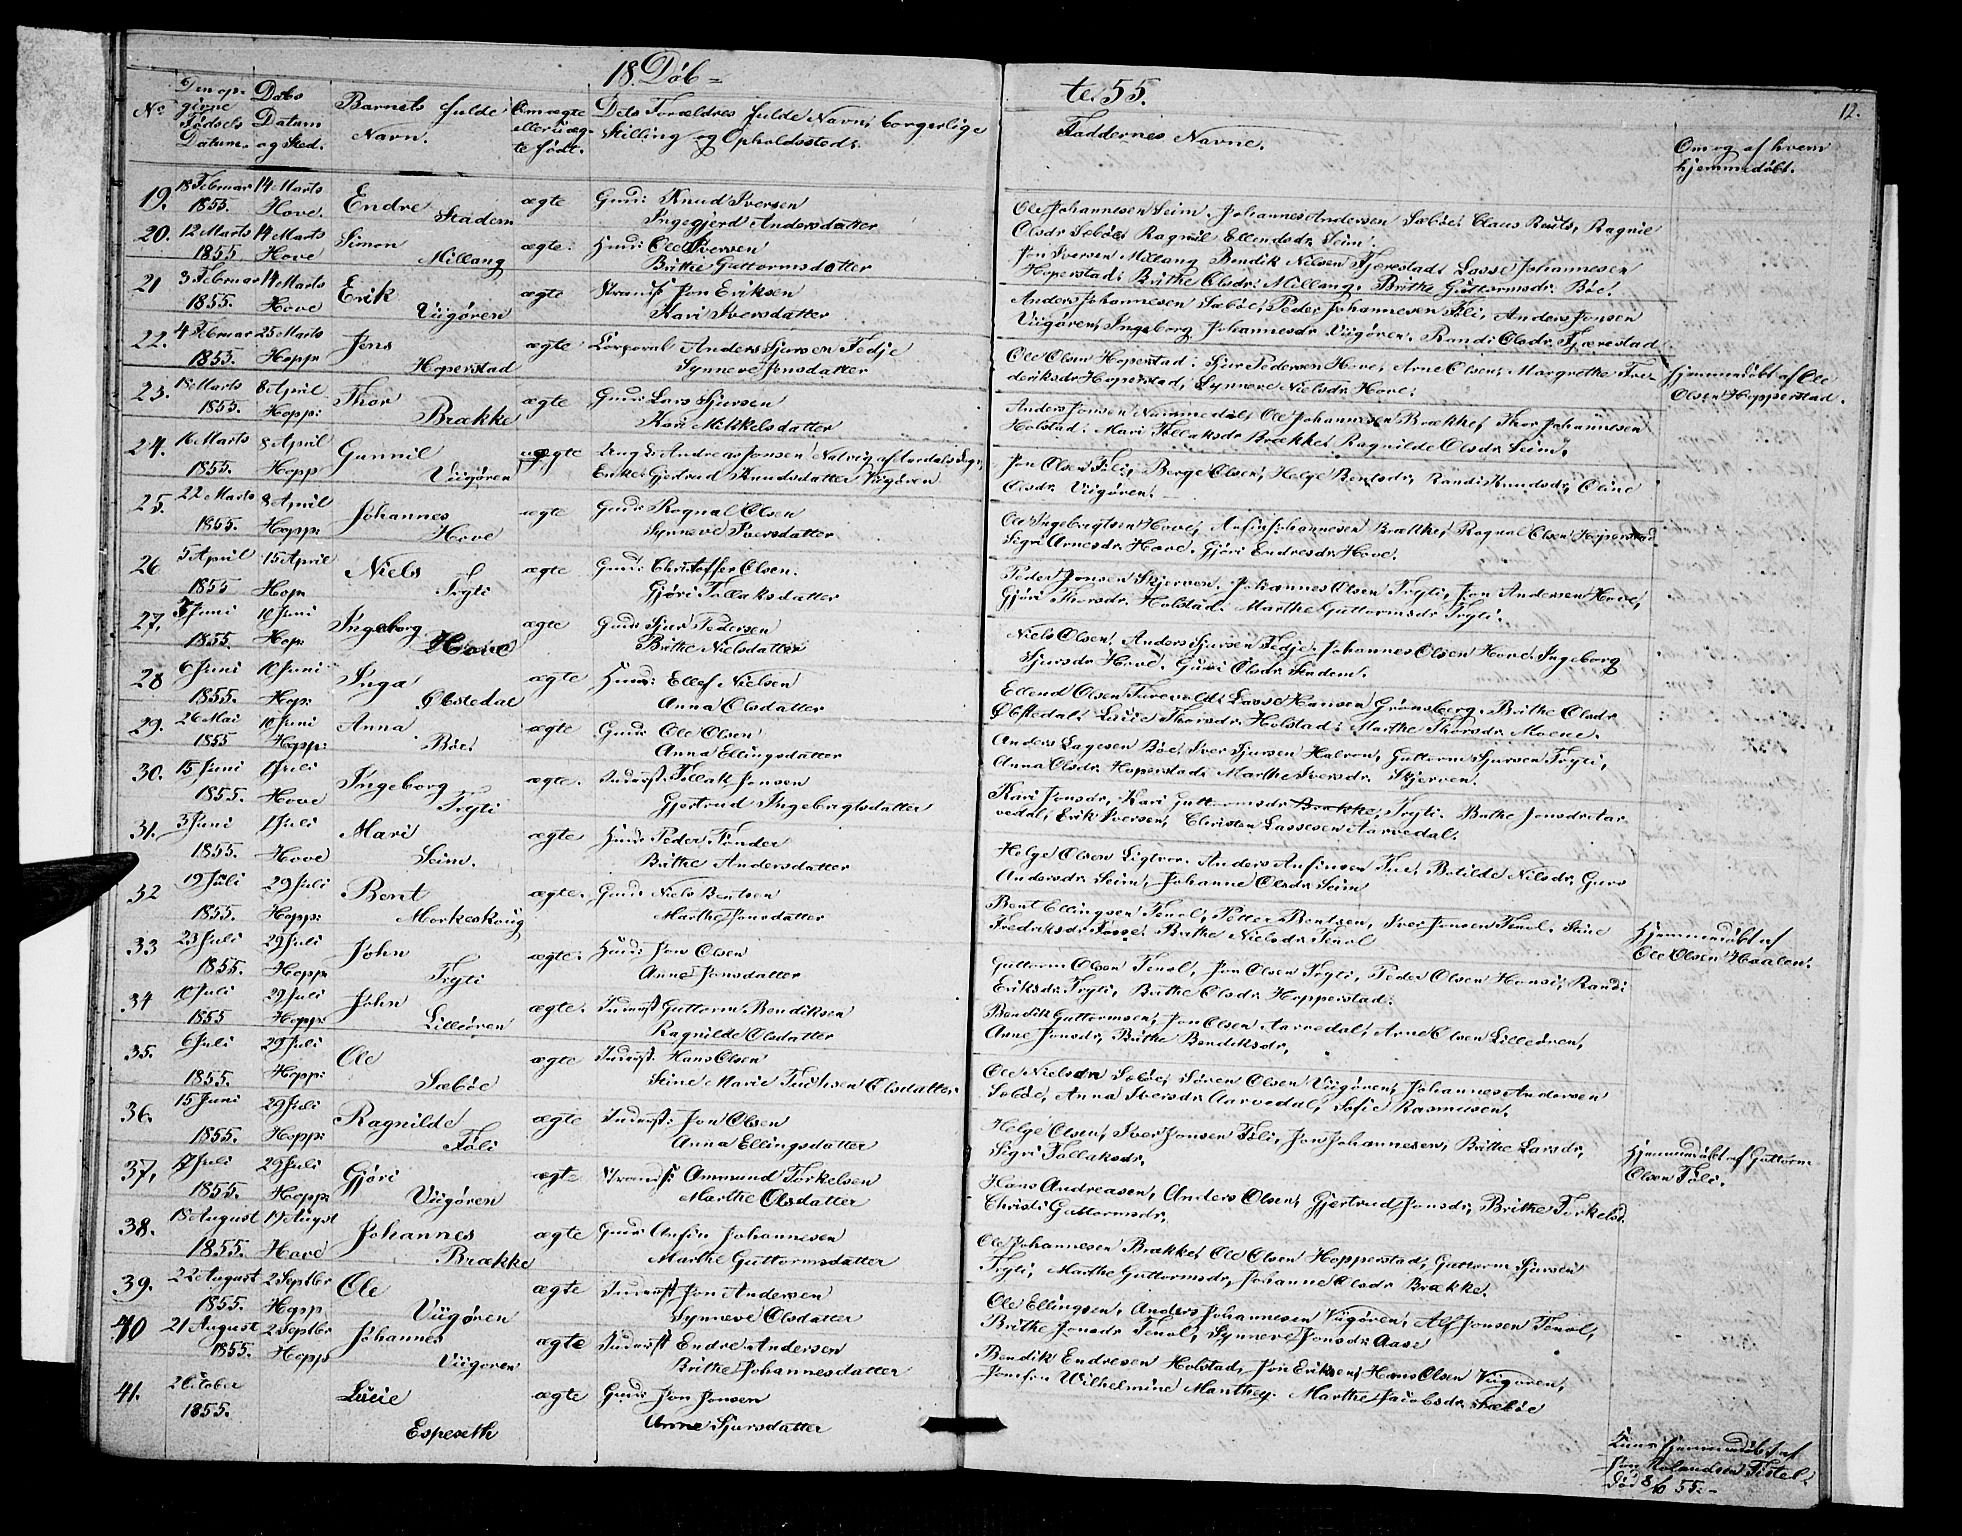 18 Døb=
te 55.
12.
No
Den op-
givne
Fødsels
Datum.
Døbs
Datum
og Sted.
Barnets fulde
Navn.
Om ægte
eller uæg-
te født.
Dets Forældres fulde Navn, borgerlige
Stilling og Opholdssted.
Faddernes Navne.
Om og af hvem
hjemmedøbt.
19. 18 Februar 14 Marts Endre ægte Gmd: Knud Iversen
1855. Hove. Stadem Ingegjerd Andersdatter
Ole Johannesen Seim, Johannes Andersen Sæbøe, Claus Ragnil
Olsdr Sæbøe Ragnil Ellendsdr. Seim.
20. 12 Marts 14 Marts Simon ægte. Huus: Ole Iversen
1855. Hove Millang Brithe Guttormsdatter
Jon Iversen Millang Bendik Nilsen Fjerestad, Lasse Johannesen
Hoperstad, Brithe Olsdr. Millang, Brithe Guttormsdr. Bøe.
21 3 Februar 14 Marts Erik ægte Strands Jon Eriksen
1855. Hove Viigøren Kari Iversdatter
Anders Johannesen Sæbøe, Peder Johannesen Føli, Anders Jonsen
Viigøren, Ingeborg Johannesdr Viigøren, Randi Olsdr. Fjærestad
22. 4 Februar 25 Marts Jens ægte Corporal Anders Sjursen Fedje
1855. Hopp Hoperstad Synneve Jensdatter
Ole Olsen Hoperstad, Sjur Pedersen Hove, Arne Olsen, Margrethe Fre-
deriksdr Hoperstad, Synneve Nielsdr. Hove.
Hjemmedøbt af Ole
Olsen Hopperstad.
23. 18 Marts 8 April Thor ægte Gmd: Lars Sjursen
1855. Hopp: Brække Kari Mikkelsdatter
Anders Jonsen Nummedal, Ole Johannesen Brække, Thor Johannesen
Holstad. Mari Tollaksdr Brække, Ragnilde Olsdr. Seim.
24. 16 Marts 8 April Gunnil uægte Ung K. Andreas Jonsen Natvig af Lærdals
1855. Hopp Viigøren Enke Gjertrud Knudsdatter Viigøren
Jon Olsen Føli, Berge Olsen, Helge Bentsdr, Randi Knudsdr, Oline
Olsdr. Viigøren.
25. 22 Marts 8 April Johannes ægte Gmd: Rognal Olsen
1855. Hopp: Hove Synneve Iversdatter
Ole Ingebrigtsen Hove, Anfin Johannesen Brække, Rognal Olsen Hoperstad
Sigri Arnesdr. Hove. Gjøri Endresdr. Hove.
26 5 April 15 April Niels ægte Gmd: Christoffer Olsen.
1855 Hop Tryti Gjøri Tollaksdatter
Peder Jonsen Skjerven, Johannes Olsen Tryti, Jon Andersen Hove,
Gjøri Thorsdr. Holstad. Marthe Guttormsdr Tryti.
27, 3 Juni 10 Juni Ingeborg ægte Gmd: Sjur Pedersen
1855. Hop: Hove Brithe Nielsdatter
Niels Olsen, Anders Sjursen Fedje, Johannes Olsen Hove, Ingeborg
Sjursdr Hove, Guri Olsdr. Stadem.
28 6 Juni 10 Juni Inga ægte Huus: Ellef Nielsen
1855. Hop: Øbstedal Anna Olsdatter
Ellend Olsen Turvold, Lasse Hansen Grønsberg, Brithe Olsdr
Øbstedal, Lucie Thorsdr. Holstad, Marthe Thorsdr. Moene.
29. 26 Mai 10 Juni Anna ægte Gmd: Ole Olsen
1855 Hopp: Bøe. Anna Ellingsdatter
Anders Lagesen Bøe, Iver Sjursen Halvon, Guttorm Sjursen Tryti,
Anna Olsdr. Hoperstad, Marthe Iversdr. Skjerven.
30. 15 Juni 1 Juli Ingeborg ægte. Inderst. Tollak Jonsen
1855. Hove Tryti Gjertrud Ingebrigtsdatter
Kari Jonsdr, Kari Guttormsdr Brække, Tryti. Brithe Jonsdr Aar-
vedal, Erik Iversen, Christen Lassesen Aarvedal.
31. 3 Juni 1 Juli Mari ægte Huus Peder Tønder
1855. Hove Seim. Brithe Andersdatter
Helge Olsen Ligtvor, Anders Anfinsen Tue, Botilde Nilsdr, Guro
Andersdr Seim, Johanne Olsdr. Seim
32 19 Juli 29 Juli Bent ægte. Gmd: Niels Bentsen
1855. Hopp: Morkeskoug Marthe Jonsdatter
Bent Ellingsen Tenol, Petter Bentsen, Iver Jonsen Tenol, Stine
Fredriksdr Fosse, Brithe Nielsdr. Tenol
Hjemmedøbt af
Ole Olsen Haalen.
33 23 Juli 29 Juli John ægte. Huus: Jon Olsen
1855. Hopp Tryti Anne Jonsdatter
Guttorm Olsen Tenol, Jon Olsen Tryti, Peder Olsen Honsi, Randi
Eriksdr. Tryti, Brithe Olsdr. Hopperstad.
34 10 Juli 29 Juli John ægte. Inderst Guttorm Bendiksen
1855 Hopp: Lilleøren Ragnilde Olsdatter
Bendik Guttormsen, Jon Olsen Aarvedal, Arne Olsen Lilleøren,
Anne Jonsdr, Brithe Bendiksdr,
35. 6 Juli 29 Juli Ole ægte Inderst. Hans Olsen
1855. Hopp: Sæbøe Stine Marie Olsdatter
Ole Nielsen Sæbøe, Søren Olsen Viigøren, Johannes Andersen
Sæbøe, Anna Iversdr. Aarvedal, Sofie Rasmusen,
36. 15 Juni 29 Juli Ragnilde ægte Inderst: Jon Olsen
1855. Hopp: Føli Anna Ellingsdatter
Helge Olsen, Iver Jonsen Føli, Jon Johannesen, Brithe Larsdr,
Sigri Tollaksdr.
Hjemmedøbt af Guttorm
Olsen Føli.
37, 17 Juli 29 Juli Gjøri ægte Strands: Ammund Torkelsen
1855. Hopp Viigøren Marthe Olsdatter
Hans Andreasen, Anders Olsen, Gjertrud Jonsdr, Brithe Torkelsd.
Christi Guttormsdr,
38. 18 August 19 Augst Johannes ægte Gmd: Anfin Johannesen
1855. Hove Brække Marthe Guttormsdatter
Ole Johannesen Brække, Ole Olsen Hopperstad, Guttorm Sjursen
Tryti, Marthe Guttormsdr, Johanne Olsdr Brække.
39. 22 August 2 Septbr Ole ægte Inderst Jon Andersen
1855. Hopp Viigøren Synneve Olsdatter
Ole Ellingsen, Anders Johannesen Viigøren, Alf Jonsen Tenol,
Brithe Jonsdr Tenol, Synneve Jonsdr. Aase
40 21 August 2 Septbr Johannes ægte Inderst Endre Andersen
1855. Hopp Viigøren Brithe Johannesdatter
Bendik Endresen Holstad, Jon Eriksen, Hans Olsen Viigøren,
Jomfru Wilhelmine Manthey, Marthe Jacobsdr. Sæbøe
41. 2 October Lucie ægte Gmd: Jon Jonsen
1855. Espeseth Anne Sjursdatter
Kuns hjemmedøbt af
Jon Rolandsen Fistel.
Død 8/10 55.